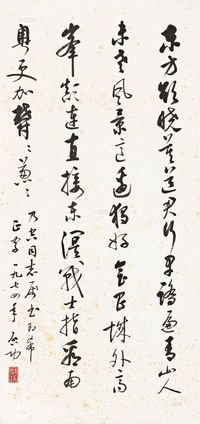 东方欲晓莫道君行早踏遍青山人
未老风景这边独好会昌城外高
峰颠连直接东溟战士指看南
粤更加郁〻葱〻
乃同志属书即希
正字 一九七四年 启功